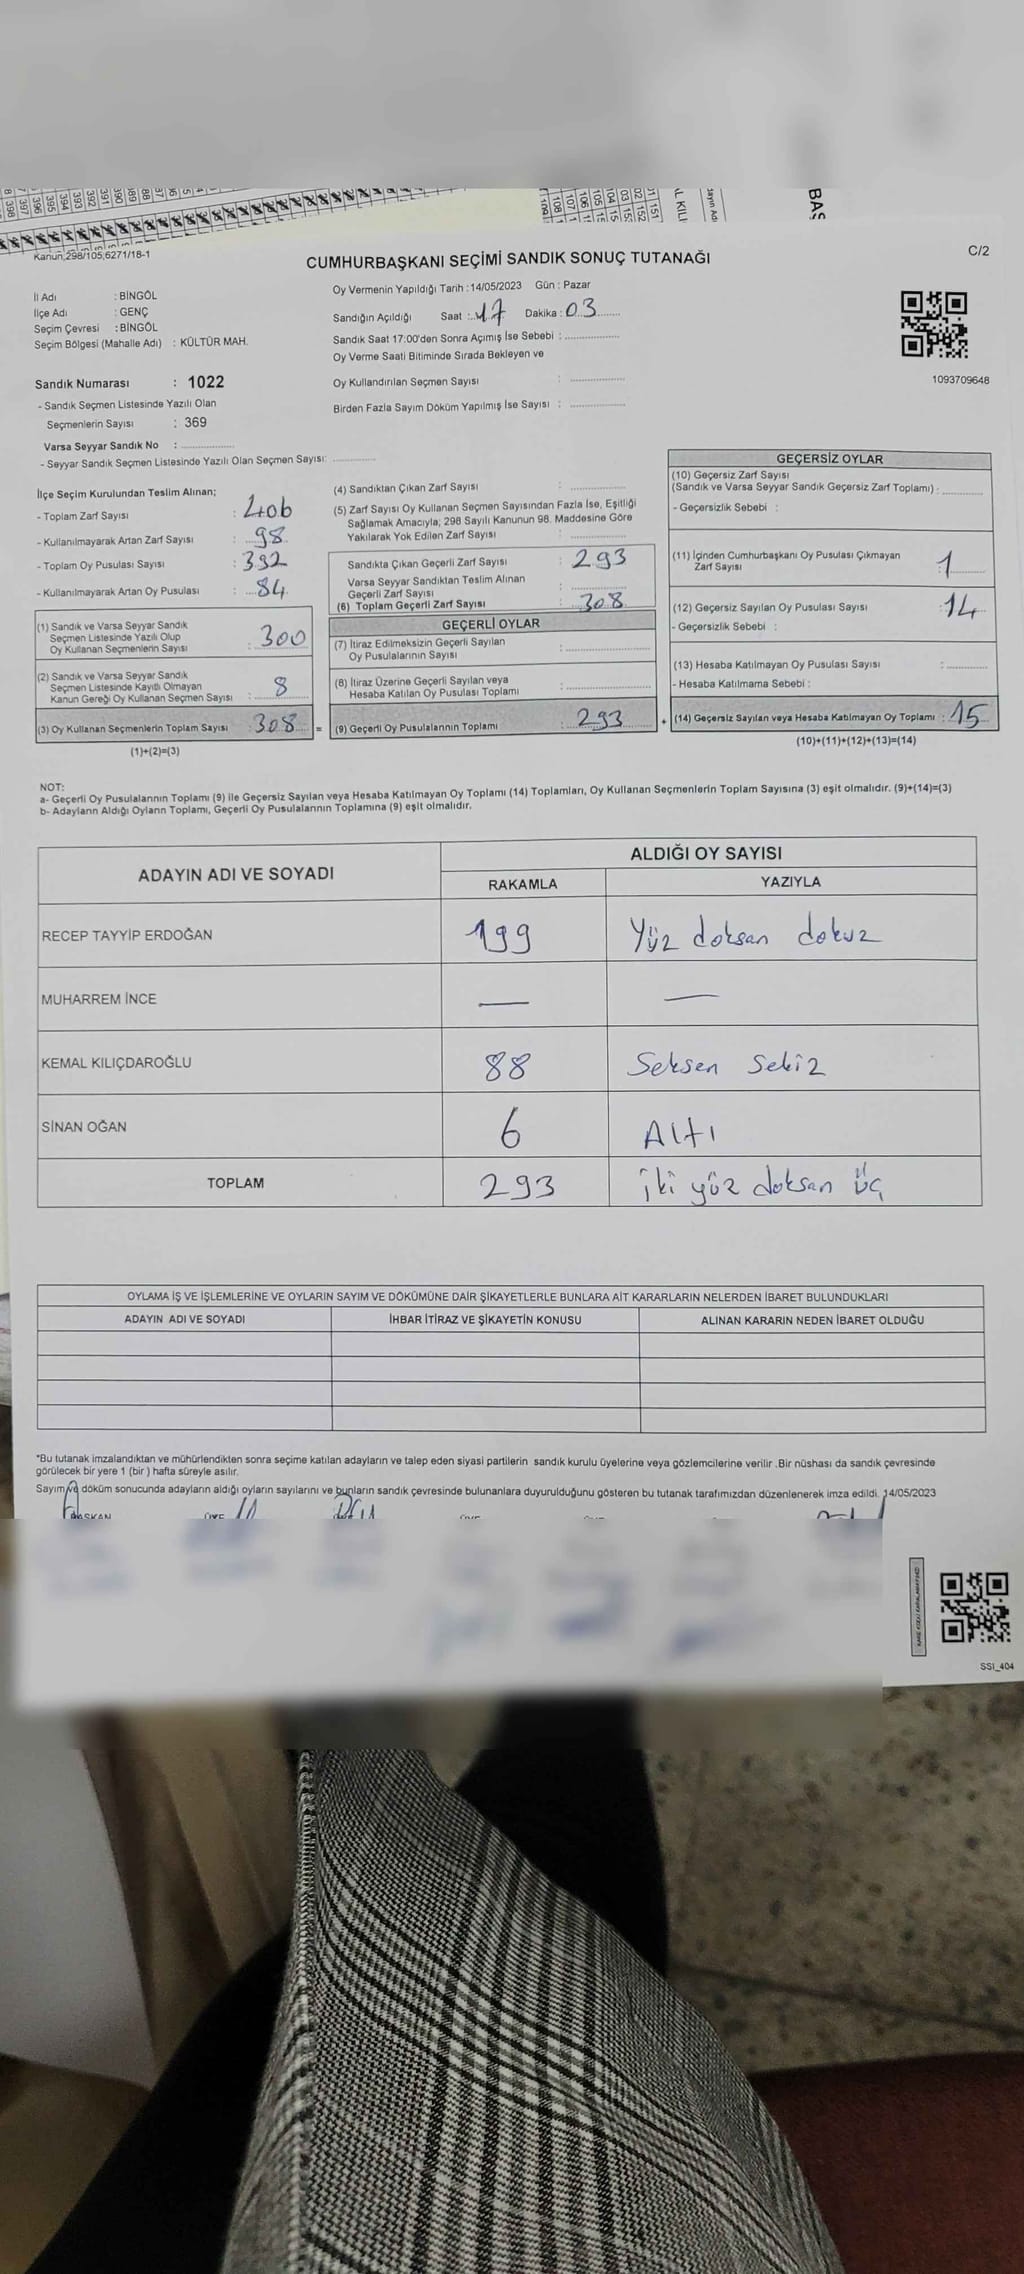 8 398
397
396
395
394
393
392
391
390
89
88
BAŞ
Kanun;298/105;6271/18-1
C/2
CUMHURBAŞKANI SEÇİMİ SANDIK SONUÇ TUTANAĞI
İl Adı : BİNGÖL
İlçe Adı : GENÇ
Seçim Çevresi : BİNGÖL
Seçim Bölgesi (Mahalle Adı) : KÜLTÜR MAH.
Oy Vermenin Yapıldığı Tarih :14/05/2023 Gün : Pazar
Sandığın Açıldığı Saat : 17 Dakika : 03
Sandık Saat 17:00'den Sonra Açımış İse Sebebi :
Oy Verme Saati Bitiminde Sırada Bekleyen ve
Oy Kullandırılan Seçmen Sayısı :
Birden Fazla Sayım Döküm Yapılmış İse Sayısı :
1093709648
Sandık Numarası : 1022
- Sandık Seçmen Listesinde Yazılı Olan
Seçmenlerin Sayısı : 369
Varsa Seyyar Sandık No :
- Seyyar Sandık Seçmen Listesinde Yazılı Olan Seçmen Sayısı:
İlçe Seçim Kurulundan Teslim Alınan;
- Toplam Zarf Sayısı : 406
- Kullanılmayarak Artan Zarf Sayısı : 98
- Toplam Oy Pusulası Sayısı : 392
- Kullanılmayarak Artan Oy Pusulası : 84
(1) Sandık ve Varsa Seyyar Sandık
Seçmen Listesinde Yazılı Olup
Oy Kullanan Seçmenlerin Sayısı : 300
(2) Sandık ve Varsa Seyyar Sandık
Seçmen Listesinde Kayıtlı Olmayan
Kanun Gereği Oy Kullanan Seçmen Sayısı : 8
(3) Oy Kullanan Seçmenlerin Toplam Sayısı : 308 =
(1)+(2)=(3)
(4) Sandıktan Çıkan Zarf Sayısı :
(5) Zarf Sayısı Oy Kullanan Seçmen Sayısından Fazla İse, Eşitliği
Sağlamak Amacıyla; 298 Sayılı Kanunun 98. Maddesine Göre
Yakılarak Yok Edilen Zarf Sayısı :
Sandıkta Çıkan Geçerli Zarf Sayısı : 293
Varsa Seyyar Sandıktan Teslim Alınan
Geçerli Zarf Sayısı :
(6) Toplam Geçerli Zarf Sayısı : 308
GEÇERLİ OYLAR
(7) İtiraz Edilmeksizin Geçerli Sayılan
Oy Pusulalarının Sayısı :
(8) İtiraz Üzerine Geçerli Sayılan veya
Hesaba Katılan Oy Pusulası Toplamı :
(9) Geçerli Oy Pusulalarının Toplamı : 293 +
GEÇERSİZ OYLAR
(10) Geçersiz Zarf Sayısı
(Sandık ve Varsa Seyyar Sandık Geçersiz Zarf Toplamı) :
- Geçersizlik Sebebi :
(11) İçinden Cumhurbaşkanı Oy Pusulası Çıkmayan
Zarf Sayısı : 1
(12) Geçersiz Sayılan Oy Pusulası Sayısı : 14
- Geçersizlik Sebebi :
(13) Hesaba Katılmayan Oy Pusulası Sayısı :
- Hesaba Katılmama Sebebi :
(14) Geçersiz Sayılan veya Hesaba Katılmayan Oy Toplamı : 15
(10)+(11)+(12)+(13)=(14)
NOT:
a- Geçerli Oy Pusulalarının Toplamı (9) ile Geçersiz Sayılan veya Hesaba Katılmayan Oy Toplamı (14) Toplamları, Oy Kullanan Seçmenlerin Toplam Sayısına (3) eşit olmalıdır. (9)+(14)=(3)
b- Adayların Aldığı Oyların Toplamı, Geçerli Oy Pusulalarının Toplamına (9) eşit olmalıdır.
ADAYIN ADI VE SOYADI
ALDIĞI OY SAYISI
RAKAMLA YAZIYLA
RECEP TAYYİP ERDOĞAN 199 Yüz doksan dokuz
MUHARREM İNCE — —
KEMAL KILIÇDAROĞLU 88 Seksen Sekiz
SİNAN OĞAN 6 Altı
TOPLAM 293 iki yüz doksan üç
OYLAMA İŞ VE İŞLEMLERİNE VE OYLARIN SAYIM VE DÖKÜMÜNE DAİR ŞİKAYETLERLE BUNLARA AİT KARARLARIN NELERDEN İBARET BULUNDUKLARI
ADAYIN ADI VE SOYADI İHBAR İTİRAZ VE ŞİKAYETİN KONUSU ALINAN KARARIN NEDEN İBARET OLDUĞU
*Bu tutanak imzalandıktan ve mühürlendikten sonra seçime katılan adayların ve talep eden siyasi partilerin sandık kurulu üyelerine veya gözlemcilerine verilir .Bir nüshası da sandık çevresinde
görülecek bir yere 1 (bir ) hafta süreyle asılır.
Sayım ve döküm sonucunda adayların aldığı oyların sayılarını ve bunların sandık çevresinde bulunanlara duyurulduğunu gösteren bu tutanak tarafımızdan düzenlenerek imza edildi. 14/05/2023
BAŞKAN
SSI_404